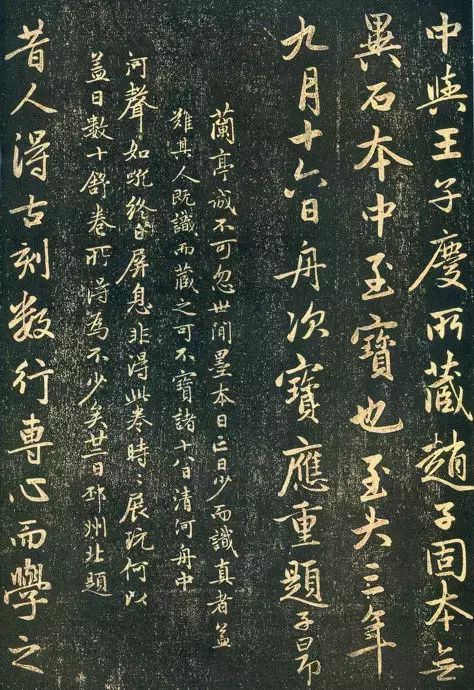 中與王子慶所藏趙子固本無
異石本中至寶也至大三年
九月十六日舟次寶應重題子昂
蘭亭誠不可忽世間墨本日亡日少而識真者益
難其人既識而藏之可不寶諸十八日清河舟中
河聲如吼終日屏息非得此卷時〻展玩何以
盖日數十舒卷所得為不少矣廿二日邳州北題
昔人得古刻數行專心而學之